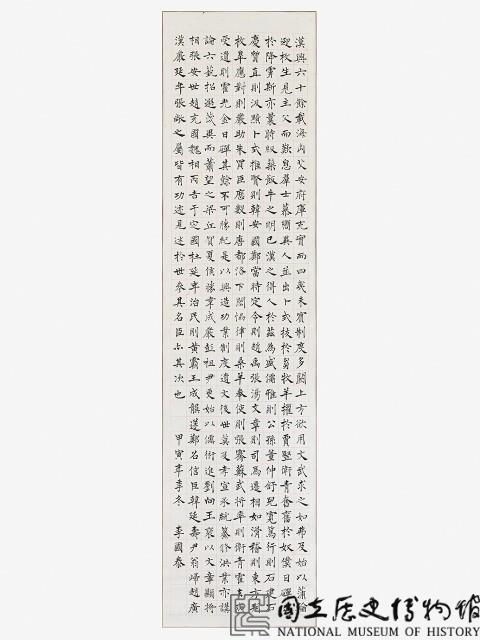 漢興六十餘載海內艾安府庫充實而四夷未賓制度多闕上方欲用文武求之如弗及始以蒲輪
迎枚生見主父而歎息羣士慕嚮異人並出卜式技於芻牧羊擢於賈豎衛青奮於奴僕日磾出
於降虜斯亦曩時版築飯牛之明已漢之得人於茲為盛儒雅則公孫董仲舒兒寬篤行則石建石
慶質直則汲黯卜式推賢則韓安國鄭當時定令則趙禹張湯文章則司馬遷相如滑稽則東方朔
枚皋應對則嚴助朱買臣歷數則唐都洛下閎協律則桑羊奉使則張騫蘇武將率則衛青霍去病
受遺則霍光金日磾其餘不可勝紀是以興造功業制度遺文後世莫及孝宣承統纂修洪業亦講
論六藝招選茂異而蕭望之梁丘賀夏侯勝韋成嚴彭祖尹更始以儒術進劉向王褒以文章顯將
相張安世趙充國魏相丙吉于定國杜延年治民則黃霸王成龔遂鄭名信臣韓延壽尹翁歸趙廣
漢嚴延年張敞之屬皆有功迹見述於世參其名臣亦其次也 甲寅年季冬 李國
國立歷史博物館
NATIONAL MUSEUM OF HISTORY